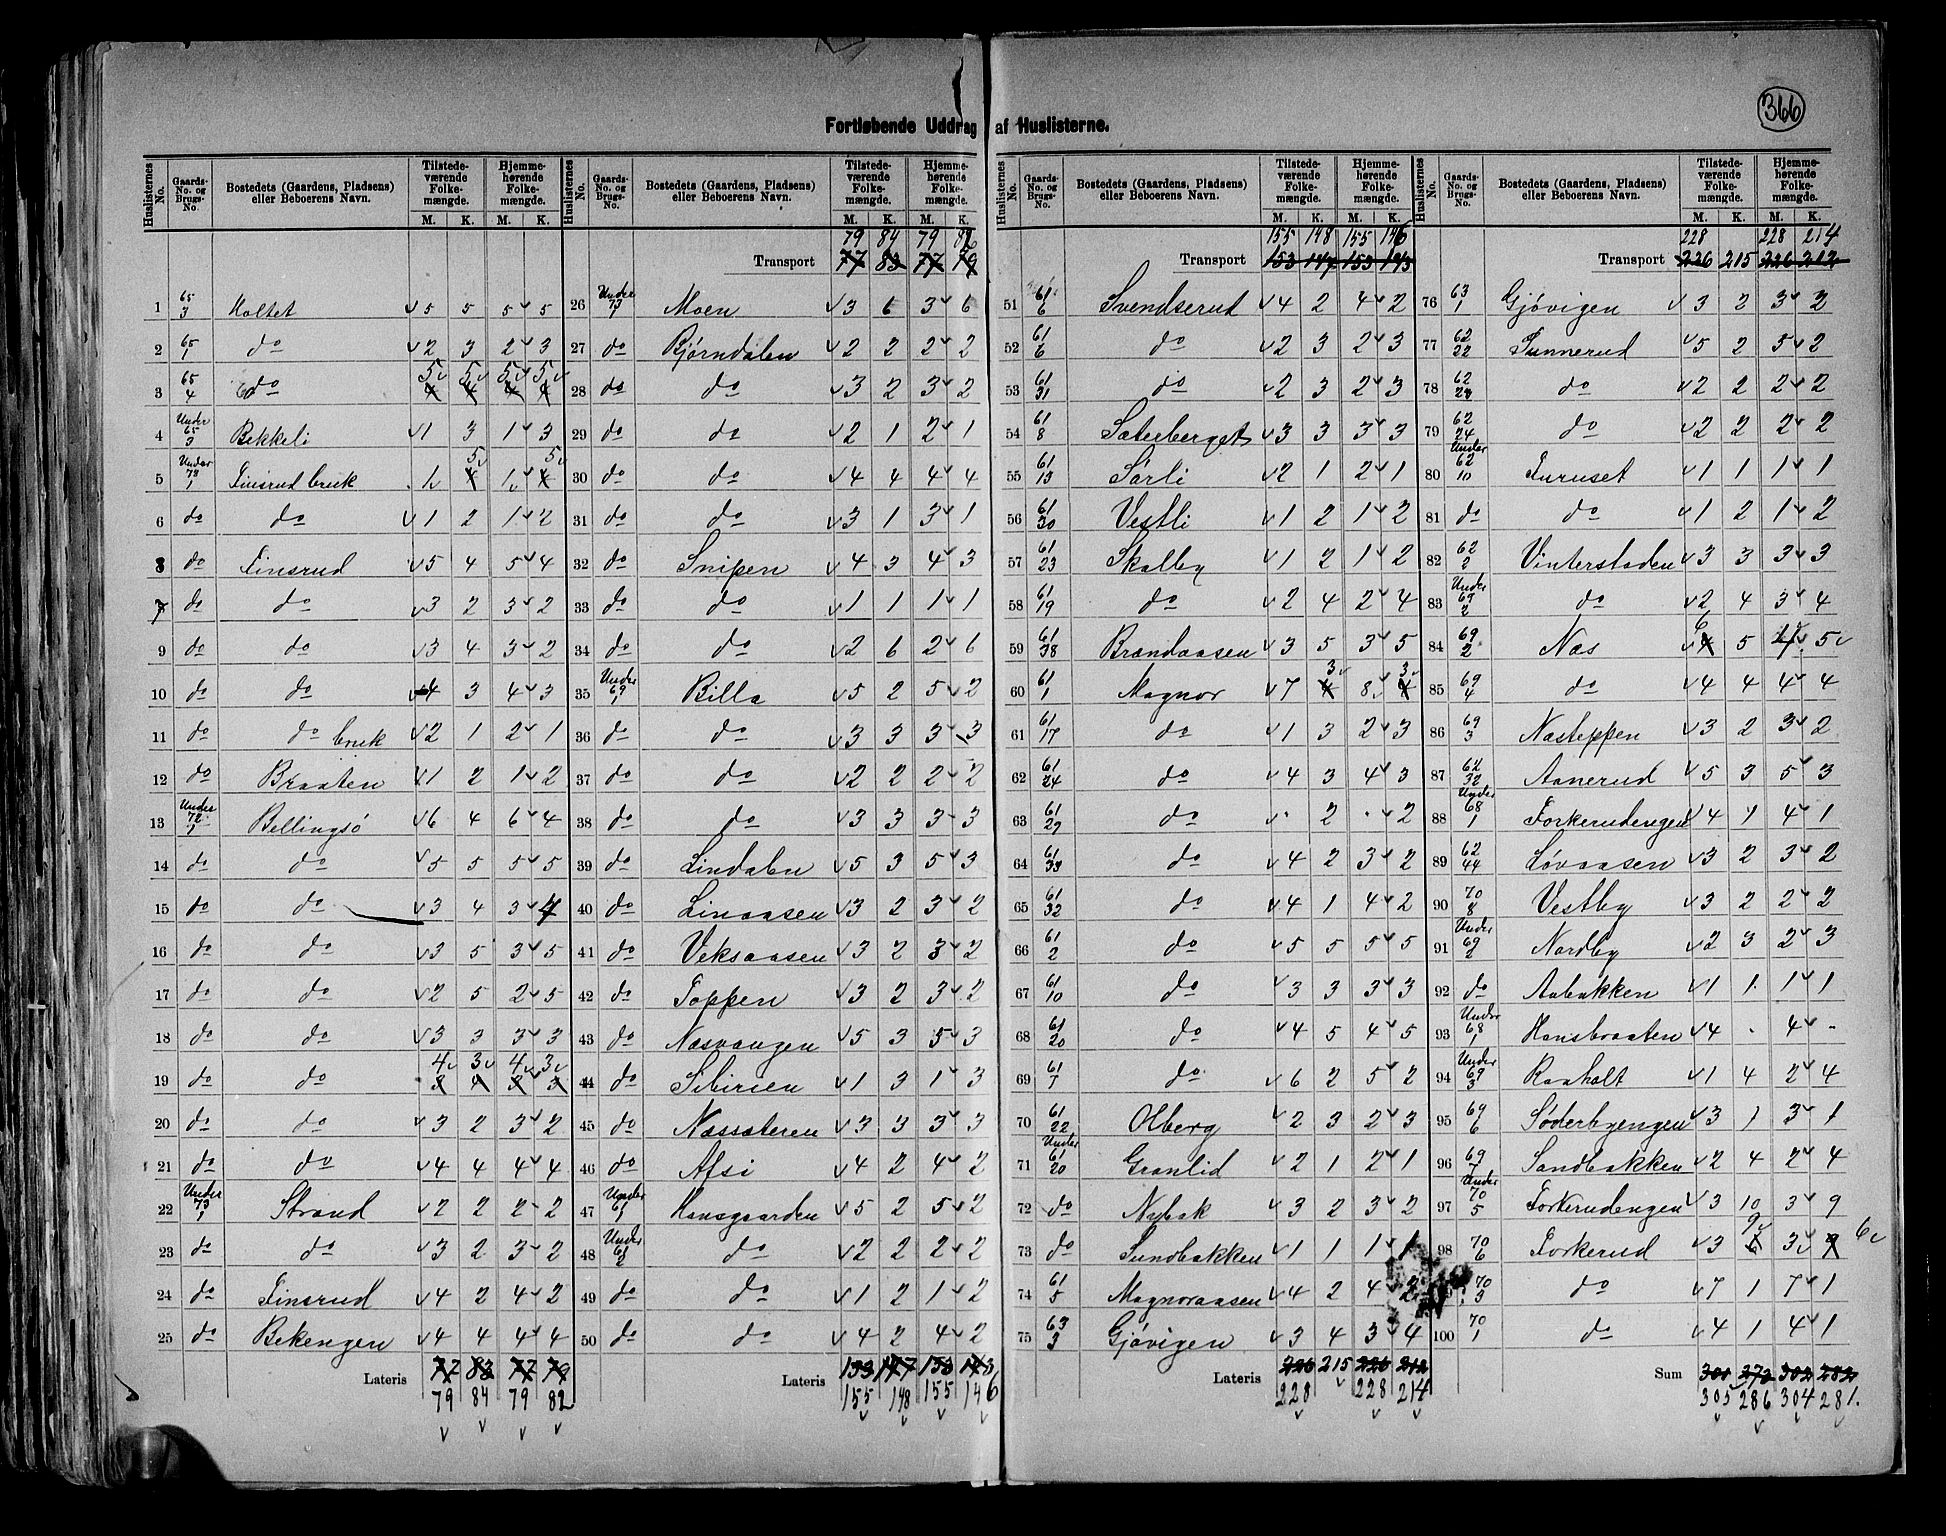 366
Fortløbende Uddrag af Huslisterne.
Huslisternes No. | Gaards-No. og Brugs-No. | Bostedets (Gaardens, Pladsens) eller Beboerens Navn. | Tilstedeværende Folkemængde. M. K. | Hjemmehørende Folkemængde. M. K.
1 65/3 Holtet 5 5 5 5
2 65/1 do 2 3 2 3
3 65/4 do 5 5 5 5
4 Under 65/3 Bekkeli 1 3 1 3
5 Under 73/1 Finsrud bruk 1 5 1 5
6 do do 1 2 1 2
8 do Finsrud 5 4 5 4
7 do do 3 2 3 2
9 do do 3 4 3 2
10 do do 4 3 4 3
11 do do bruk 2 1 2 1
12 do Braaten 1 2 1 2
13 Under 72/1 Bellingsö 6 4 6 4
14 do do 5 5 5 5
15 do do 3 4 3 4
16 do do 3 5 3 5
17 do do 2 5 2 5
18 do do 3 3 3 3
19 do do 4 3 4 3
20 do do 3 2 3 2
21 do do 4 4 4 4
22 Under 73/1 Strand 2 2 2 2
23 do do 3 2 3 2
24 do Finsrud 4 2 4 2
25 do Bekengen 4 4 4 4
Lateris 77 83 77 79
79 84 79 82
79 84 79 82
Transport 77 83 77 79
26 Under 73/1 Moen 3 6 3 6
27 do Bjørndalen 2 2 2 2
28 do do 3 2 3 2
29 do do 2 1 2 1
30 do do 4 4 4 4
31 do do 3 1 3 1
32 do Snipen 4 3 4 3
33 do do 1 1 1 1
34 do do 2 6 2 6
35 Under 69/1 Billa 5 2 5 2
36 do do 3 3 3 3
37 do do 2 2 2 2
38 do do 3 3 3 3
39 do Lindalen 5 3 5 3
40 do Linaasen 3 2 3 2
41 do Veksaasen 3 2 3 2
42 do Toppen 3 2 3 2
43 do Næsvangen 5 3 5 3
44 do Sibirien 1 3 1 3
45 do Næssæteren 3 3 3 3
46 do Afsi 4 2 4 2
47 Under 61/1 Hansgaarden 5 2 5 2
48 Under 68/2 do 2 2 2 2
49 do do 1 2 1 2
50 do do 4 2 4 2
Lateris 153 147 153 143
155 148 155 146
155 148 155 146
Transport 153 147 153 143
51 61/6 Svendserud 4 2 4 2
52 61/6 do 2 3 2 3
53 61/31 do 2 3 2 3
54 61/8 Sæterberget 3 3 3 3
55 61/13 Sørli 2 1 2 1
56 61/30 Vestli 1 2 1 2
57 61/23 Skalby 1 2 1 2
58 61/19 do 2 4 2 4
59 61/38 Brandaasen 3 5 3 5
60 61/1 Magnor 7 3 8 3
61 61/17 do 1 3 2 3
62 61/24 do 4 3 4 3
63 61/27 do · 2 · 2
64 61/33 do 4 2 3 2
65 61/32 do 4 1 4 2
66 61/2 do 5 5 5 5
67 61/10 do 3 3 3 3
68 61/20 do 4 5 4 5
69 61/7 do 6 2 5 2
70 61/22 Olberg 2 3 2 3
71 Under 61/20 Granlid 2 1 2 1
72 do Nybak 3 2 3 2
73 do Sundbakken 1 1 1 1
74 61/5 Magnoraasen 4 2 4 2
75 63/3 Gjövigen 3 4 3 4
Lateris 226 215 226 212
228 228 214
228 228 214
Transport 226 215 226 212
76 63/1 Gjövigen 3 2 3 2
77 62/22 Sunnerud 5 2 5 2
78 62/27 do 2 2 2 2
79 62/24 do 2 2 2 2
80 Under 62/10 Furuset 1 1 1 1
81 do do 1 2 1 2
82 62/2 Vinterstaden 3 3 3 3
83 Under 69/2 do 2 4 3 4
84 69/2 Næs 6 5 5
85 69/4 do 4 4 4 4
86 69/3 Næsteppen 3 2 3 2
87 62/32 Aanerud 5 3 5 3
88 Under 68/1 Forkerudengen 4 1 4 1
89 62/44 Løvaasen 3 2 3 2
90 70/8 Vestby 3 2 2 2
91 Under 69/2 Nordby 2 3 2 3
92 do Aabakken 1 1 1 1
93 Under 68/1 Hansbraaten 4 - 4 -
94 Under 69/3 Raaholt 1 4 2 4
95 69/6 Søderbyengen 3 1 3 1
96 69/7 Sandbakken 2 4 2 4
97 Under 70/5 Forkerudengen 3 10 3 9
98 70/6 Forkerud 3 9 3 6
70/3 do 7 1 7 1
100 70/1 do 4 1 4 1
Sum 301 273 302 282
305 286 304 281.